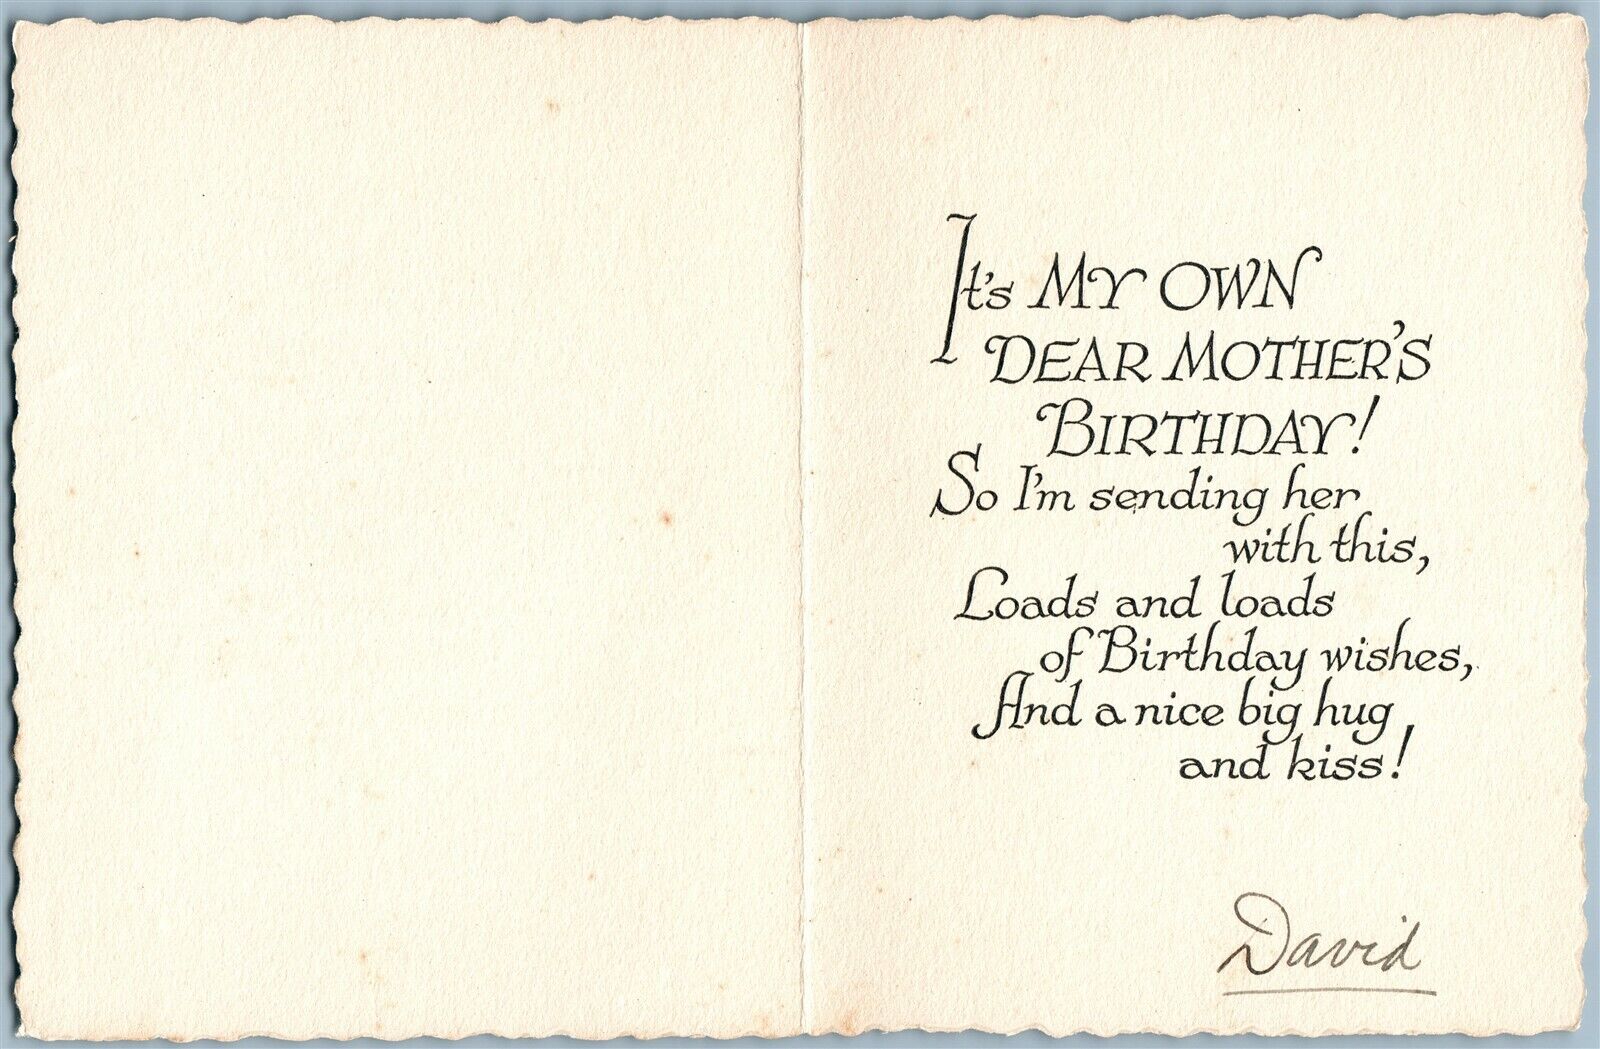 It's MY OWN
DEAR MOTHER'S
BIRTHDAY!
So I'm sending her
with this,
Loads and loads
of Birthday wishes,
And a nice big hug
and kiss!
David